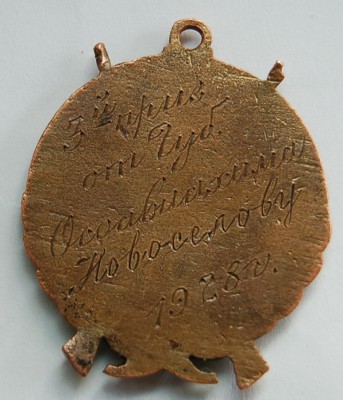 3й приз
от Губ.
Осоавиахима
Новоселову
1928г.